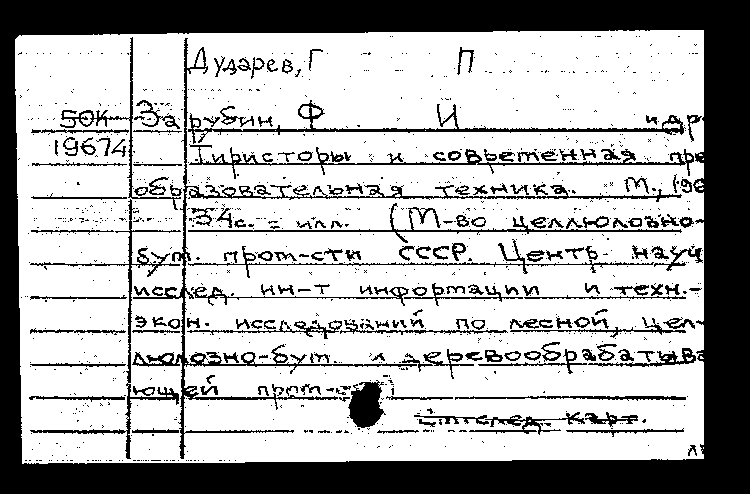 Дударев, Г П
50К Зарубин, Ф И и др
19674 Тиристоры и современная пре
образовательная техника. М., 196
34с. с илл. (М-во целлюлозно-
бум. пром-сти СССР. Центр. науч
исслед. ин-т информации и техн.-
экон. исследований по лесной, цел-
люлозно-бум. и деревообрабатыва
ющей пром-
карт.